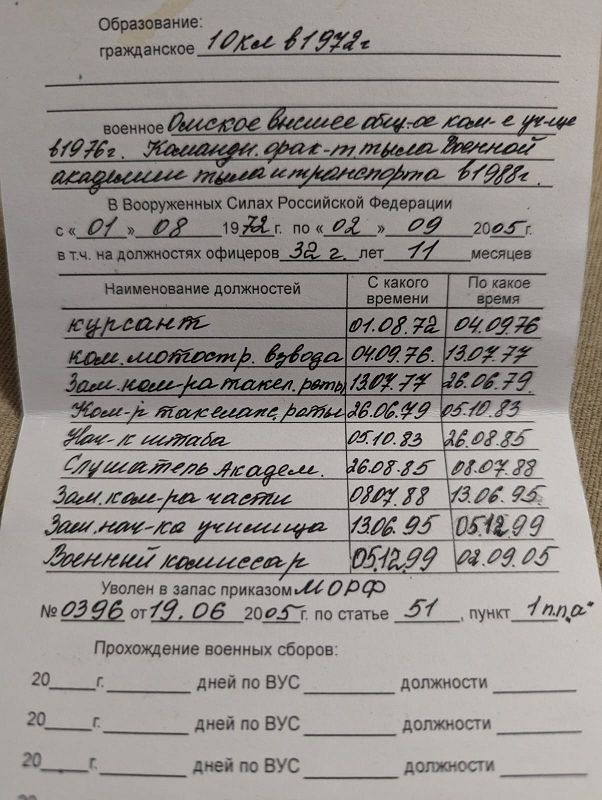 Образование:
гражданское 10 кл в 1972г
военное Омское высшее общ-ое ком-е уч-ще
в 1976г. Команди. фак-т тыла Военной
академии тыла и транспорта в 1988г.
В Вооруженных Силах Российской Федерации
с « 01 » 08 1972 г. по « 02 » 09 2005 г.
в т.ч. на должностях офицеров 32 г. лет 11 месяцев
Наименование должностей С какого времени По какое время
курсант 01.08.72 04.09.76
ком. мотостр. взвода 04.09.76. 13.07.77
Зам. ком-ра такел. роты 13.07.77 26.06.79.
Ком-р такелажн. роты 26.06.79 05.10.83
Нач-к штаба 05.10.83 26.08.85
Слушатель Академ. 26.08.85 08.07.88
Зам. ком-ра части 08.07.88 13.06.95
Зам. нач-ка училища 13.06.95 05.12.99
Военный комиссар 05.12.99 02.09.05
Уволен в запас приказом МО РФ
№ 0396 от 19.06 2005 г. по статье 51, пункт 1 п.п. „а"
Прохождение военных сборов:
20____г. ________ дней по ВУС ________ должности ________
20____г. ________ дней по ВУС ________ должности ________
20____г. ________ дней по ВУС ________ должности ________